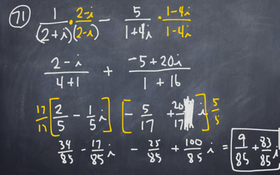 71) 1/(2+i) · (2-i)/(2-i) - 5/(1+4i) · (1-4i)/(1-4i)
(2-i)/(4+1) + (-5+20i)/(1+16)
17/17 [2/5 - 1/5 i] [-5/17 + 20/17 i] 5/5
34/85 - 17/85 i - 25/85 + 100/85 i = 9/85 + 83/85 i